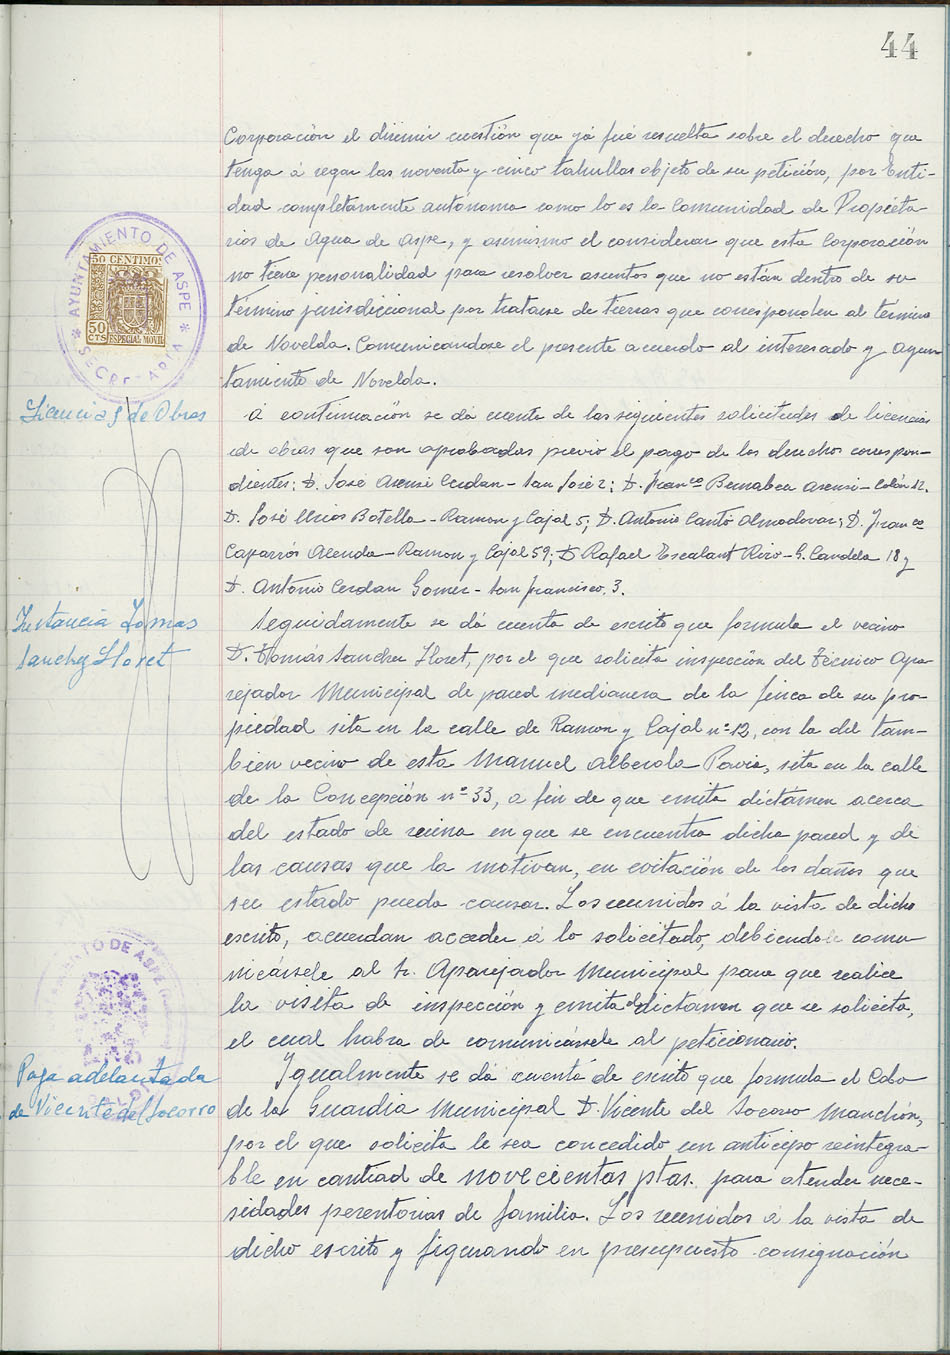 44
Corporación el dirimir cuestión que yá fué resuelta sobre el derecho que
tenga á regar las noventa y cinco tahullas objeto de su petición, por Enti-
dad completamente autónoma como lo es la Comunidad de Propieta-
rios de Agua de Aspe, y asimismo el considerar que esta Corporación
no tiene personalidad para resolver asuntos que no están dentro de su
término jurisdiccional por tratarse de tierras que corresponden al término
de Novelda. Comunicandose el presente acuerdo al interesado y Ayun
tamiento de Novelda.
AYUNTAMIENTO DE ASPE
50 CENTIMOS
50 CTS
ESPECIAL MOVIL
SECRETARIA
Licencias de Obras
á continuación se dá cuenta de las siguientes solicitudes de licencias
de obras que son aprobadas previo el pago de los derechos correspon-
dientes: D. José Asensi Cerdan - San José 2; D. Franco Bernabeu Asensi - Colón 12.
D. José Urios Botella - Ramon y Cajal 5; D. Antonio Cantó Almodovar; D. Franco
Caparrós Alenda - Ramon y Cajal 59; D. Rafael Escalant Rizo - G. Candela 18 y
D. Antonio Cerdan Gomez - San Francisco, 3.
Instancia Tomas
Sanchez Lloret
Seguidamente se dá cuenta de escrito que formula el vecino
D. Tomás Sanchez Lloret, por el que solicita inspección del Técnico Apa-
rejador Municipal de pared medianera de la finca de su pro-
piedad sita en la calle de Ramon y Cajal nº 12, con la del tam-
bien vecino de esta Manuel Alberola Pavia, sita en la calle
de la Concepción nº 33, a fin de que emita dictámen acerca
del estado de ruina en que se encuentra dicha pared y de
las causas que la motivan, en evitación de los daños que
su estado pueda causar. Los reunidos á la vista de dicho
escrito, acuerdan acceder á lo solicitado, debiendole comu-
nicársele al Sr. Aparejador Municipal para que realice
la visita de inspección y emita el dictámen que se solicita,
el cual habra de comunicársele al peticionario.
Paga adelantada
de Vicente del Socorro
Igualmente se dá cuenta de escrito que formula el Cabo
de la Guardia Municipal D. Vicente del Socorro Manchón,
por el que solicita le sea concedido un anticipo reintegra-
ble en cantiad de novecientas ptas. para atender nece-
sidades perentorias de familia. Los reunidos á la vista de
dicho escrito y figurando en presupuesto consignación